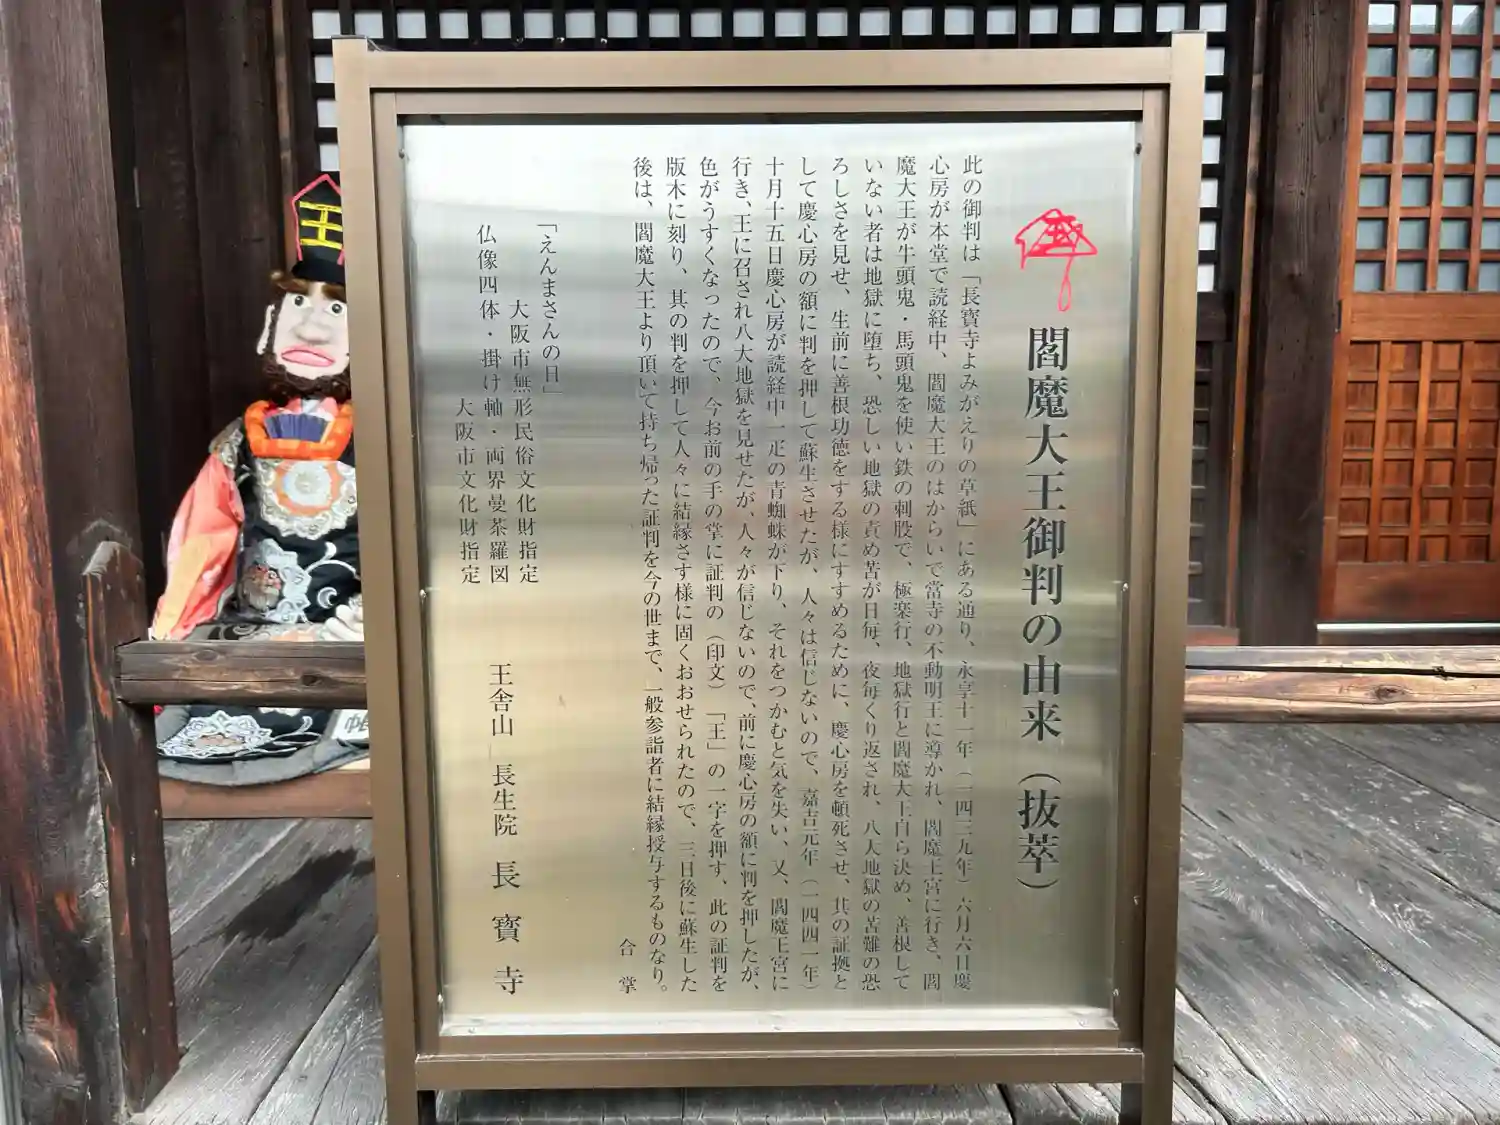 閻魔大王御判の由来（抜萃）
此の御判は「長寳寺よみがえりの草紙」にある通り、永享十一年（一四三九年）六月六日慶
心房が本堂で読経中、閻魔大王のはからいで當寺の不動明王に導かれ、閻魔王宮に行き、閻
魔大王が牛頭鬼・馬頭鬼を使い鉄の刺股で、極楽行、地獄行と閻魔大王自ら決め、善根して
いない者は地獄に堕ち、恐しい地獄の責め苦が日毎、夜毎くり返され、八大地獄の苦難の恐
ろしさを見せ、生前に善根功徳をする様にすすめるために、慶心房を頓死させ、其の証拠と
して慶心房の額に判を押して蘇生させたが、人々は信じないので、嘉吉元年（一四四一年）
十月十五日慶心房が読経中一疋の青蜘蛛が下り、それをつかむと気を失い、又、閻魔王宮に
行き、王に召され八大地獄を見せたが、人々が信じないので、前に慶心房の額に判を押したが、
色がうすくなったので、今お前の手の掌に証判の（印文）「王」の一字を押す、此の証判を
版木に刻り、其の判を押して人々に結縁さす様に固くおおせられたので、三日後に蘇生した
後は、閻魔大王より頂いて持ち帰った証判を今の世まで、一般参詣者に結縁授与するものなり。
合掌
「えんまさんの日」
大阪市無形民俗文化財指定
仏像四体・掛け軸・両界曼荼羅図
大阪市文化財指定
王舎山 長生院 長寳寺
王